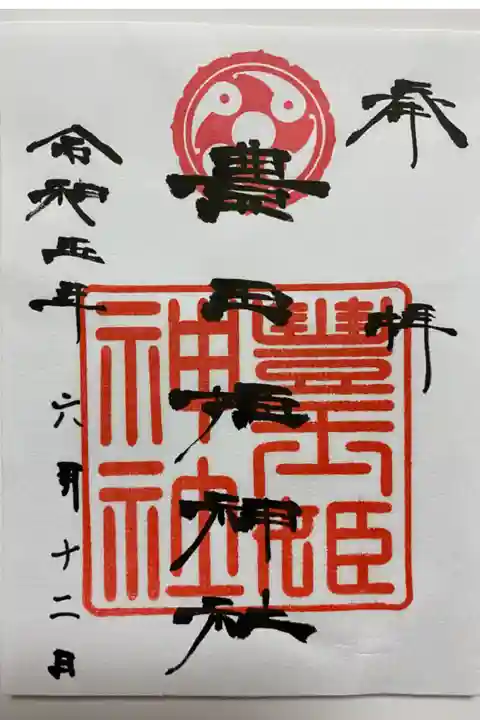 奉拝
豊玉姫神社
令和五年 六月十二日
豊玉姫
神社